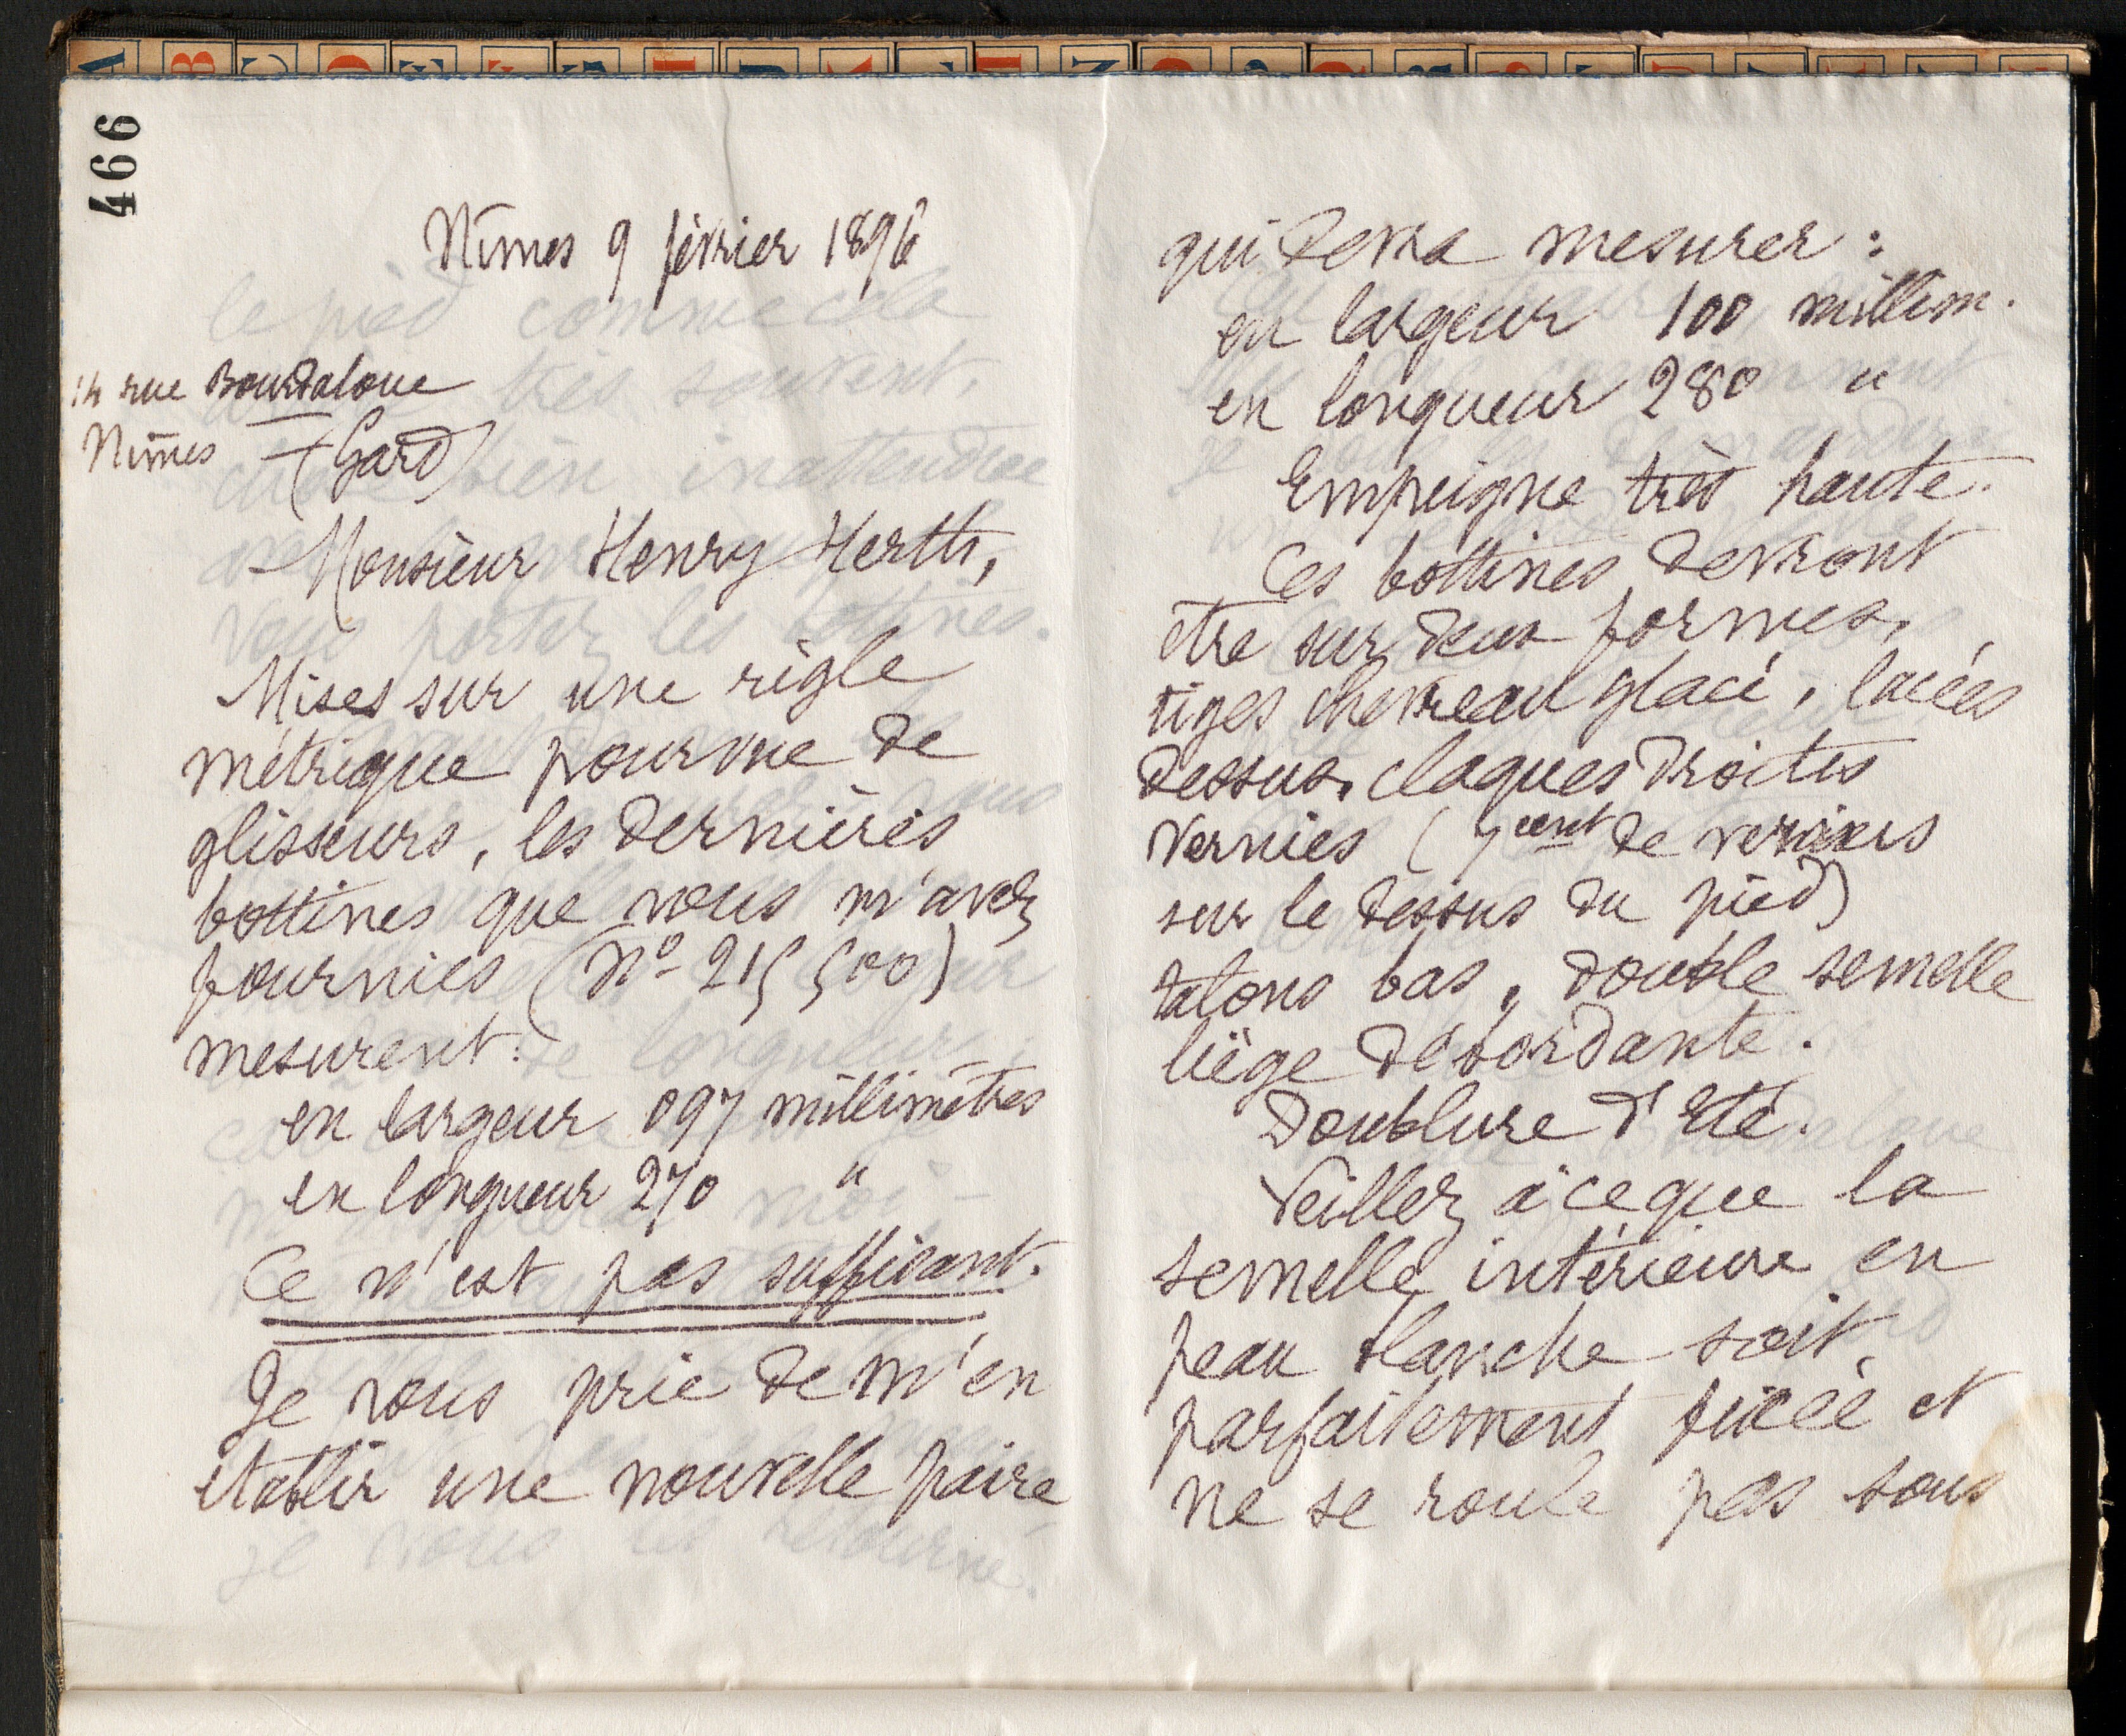 466
Nîmes 9 février 1896
14 rue Bourdaloue
Nîmes (Gard)
Monsieur Henry Herth,
Mises sur une règle
métrique pourvue de
glisseurs, les dernières
bottines que vous m'avez
fournies (N° 215 500)
mesurent:
en largeur 097 millimètres
en longueur 270 "
Ce n'est pas suffisant.
Je vous prie de m'en
établir une nouvelle paire
qui devra mesurer :
en largeur 100 millim.
en longueur 280 "
Empeigne très haute.
Ces bottines devront
être sur deux formes,
tiges chevreau glacé, lacées
dessus, claques droites
vernies (7 cent de vernis
sur le dessus du pied)
talons bas, double semelle
liège débordante.
Doublure d'Eté.
Veillez à ce que la
semelle intérieure en
peau blanche soit
parfaitement fixée et
ne se roule pas sous